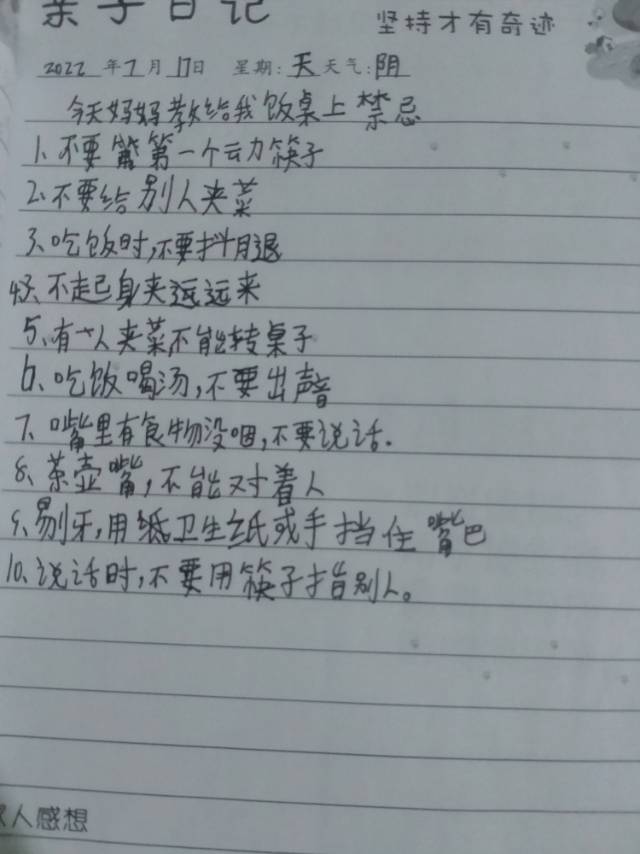 亲子日记
坚持才有奇迹
2022年7月17日 星期:天 天气:阴
今天妈妈教给我饭桌上禁忌
1、不要第一个动筷子
2、不要给别人夹菜
3、吃饭时,不要抖腿
4、不起身夹远远来
5、有人夹菜,不能转桌子
6、吃饭喝汤,不要出声音
7、嘴里有食物没咽,不要说话.
8、茶壶嘴,不能对着人
9、剔牙,用纸卫生纸或手挡住嘴巴
10、说话时,不要用筷子指别人。
人感想